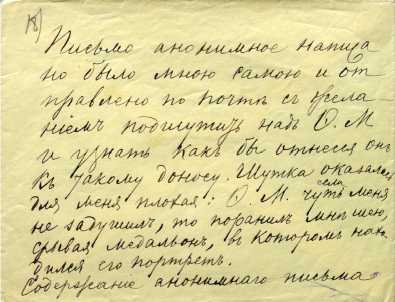 18)
Письмо анонимное написа
но было мною самою и от
правлено по почтѣ съ жела
ніемъ подшутить надъ О. М
и узнать какъ бы отнесся онъ
къ такому доносу. Шутка оказалась
для меня плохая: О. М. чуть меня
не задушилъ, то поранилъ мнѣ шею,
срывая медальонъ, въ которомъ нахо
дился его портретъ.
Содержание анонимнаго письма